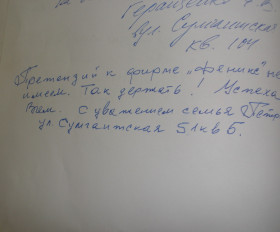 Геращенко
ул. Сумгаитская
кв. 104
Претензий к фирме „Феникс" не
имеем. Так держать! Успеха
Вам. С уважением семья Петр
ул. Сумгаитская 51 кв 5.